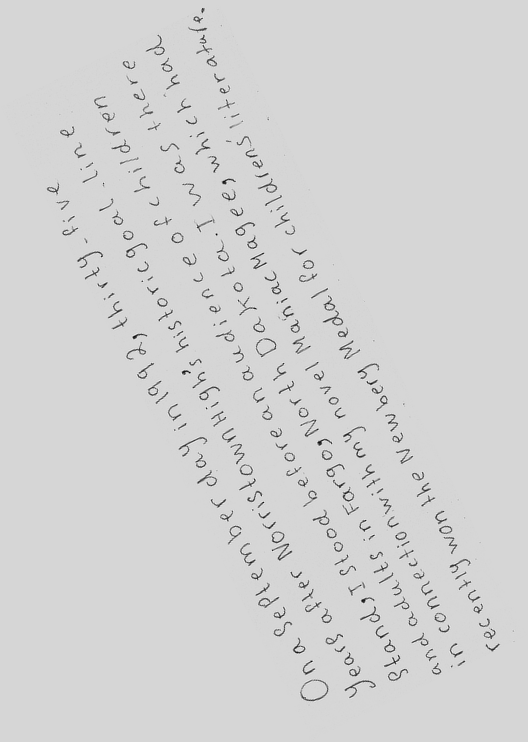 On a September day in 1992, thirty-five
years after Norristown High's historic goal-line
stand, I stood before an audience of children
and adults in Fargo, North Dakota. I was there
in connection with my novel Maniac Magee, which had
recently won the Newbery Medal for children's literature.